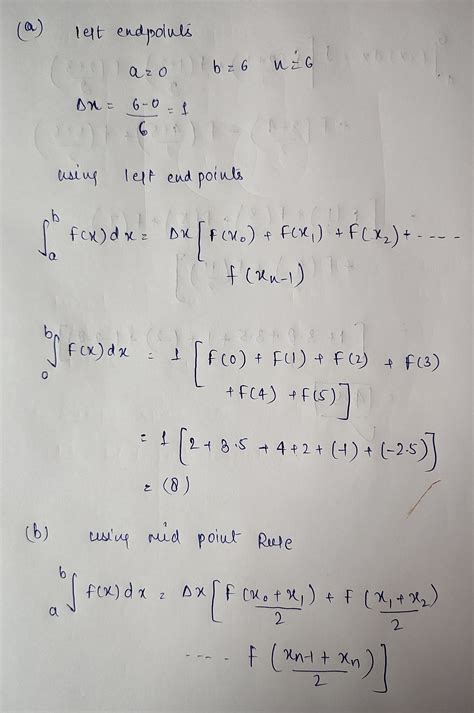 (a) left endpoints
a=0 b=6 n=6
Δx = 6-0/6 = 1
using left endpoints
∫_a^b f(x)dx = Δx[f(x₀) + f(x₁) + f(x₂) + -----
f(xₙ₋₁)
∫_0^b f(x)dx = 1[f(0) + f(1) + f(2) + f(3)
+f(4) + f(5)]
= 1[2+3.5+4+2+(-1)+(-2.5)]
= (8)
(b) using mid point Rule
∫_a^b f(x)dx = Δx[f(x₀+x₁)/2 + f(x₁+x₂)/2
---- f(xₙ₋₁+xₙ)/2]